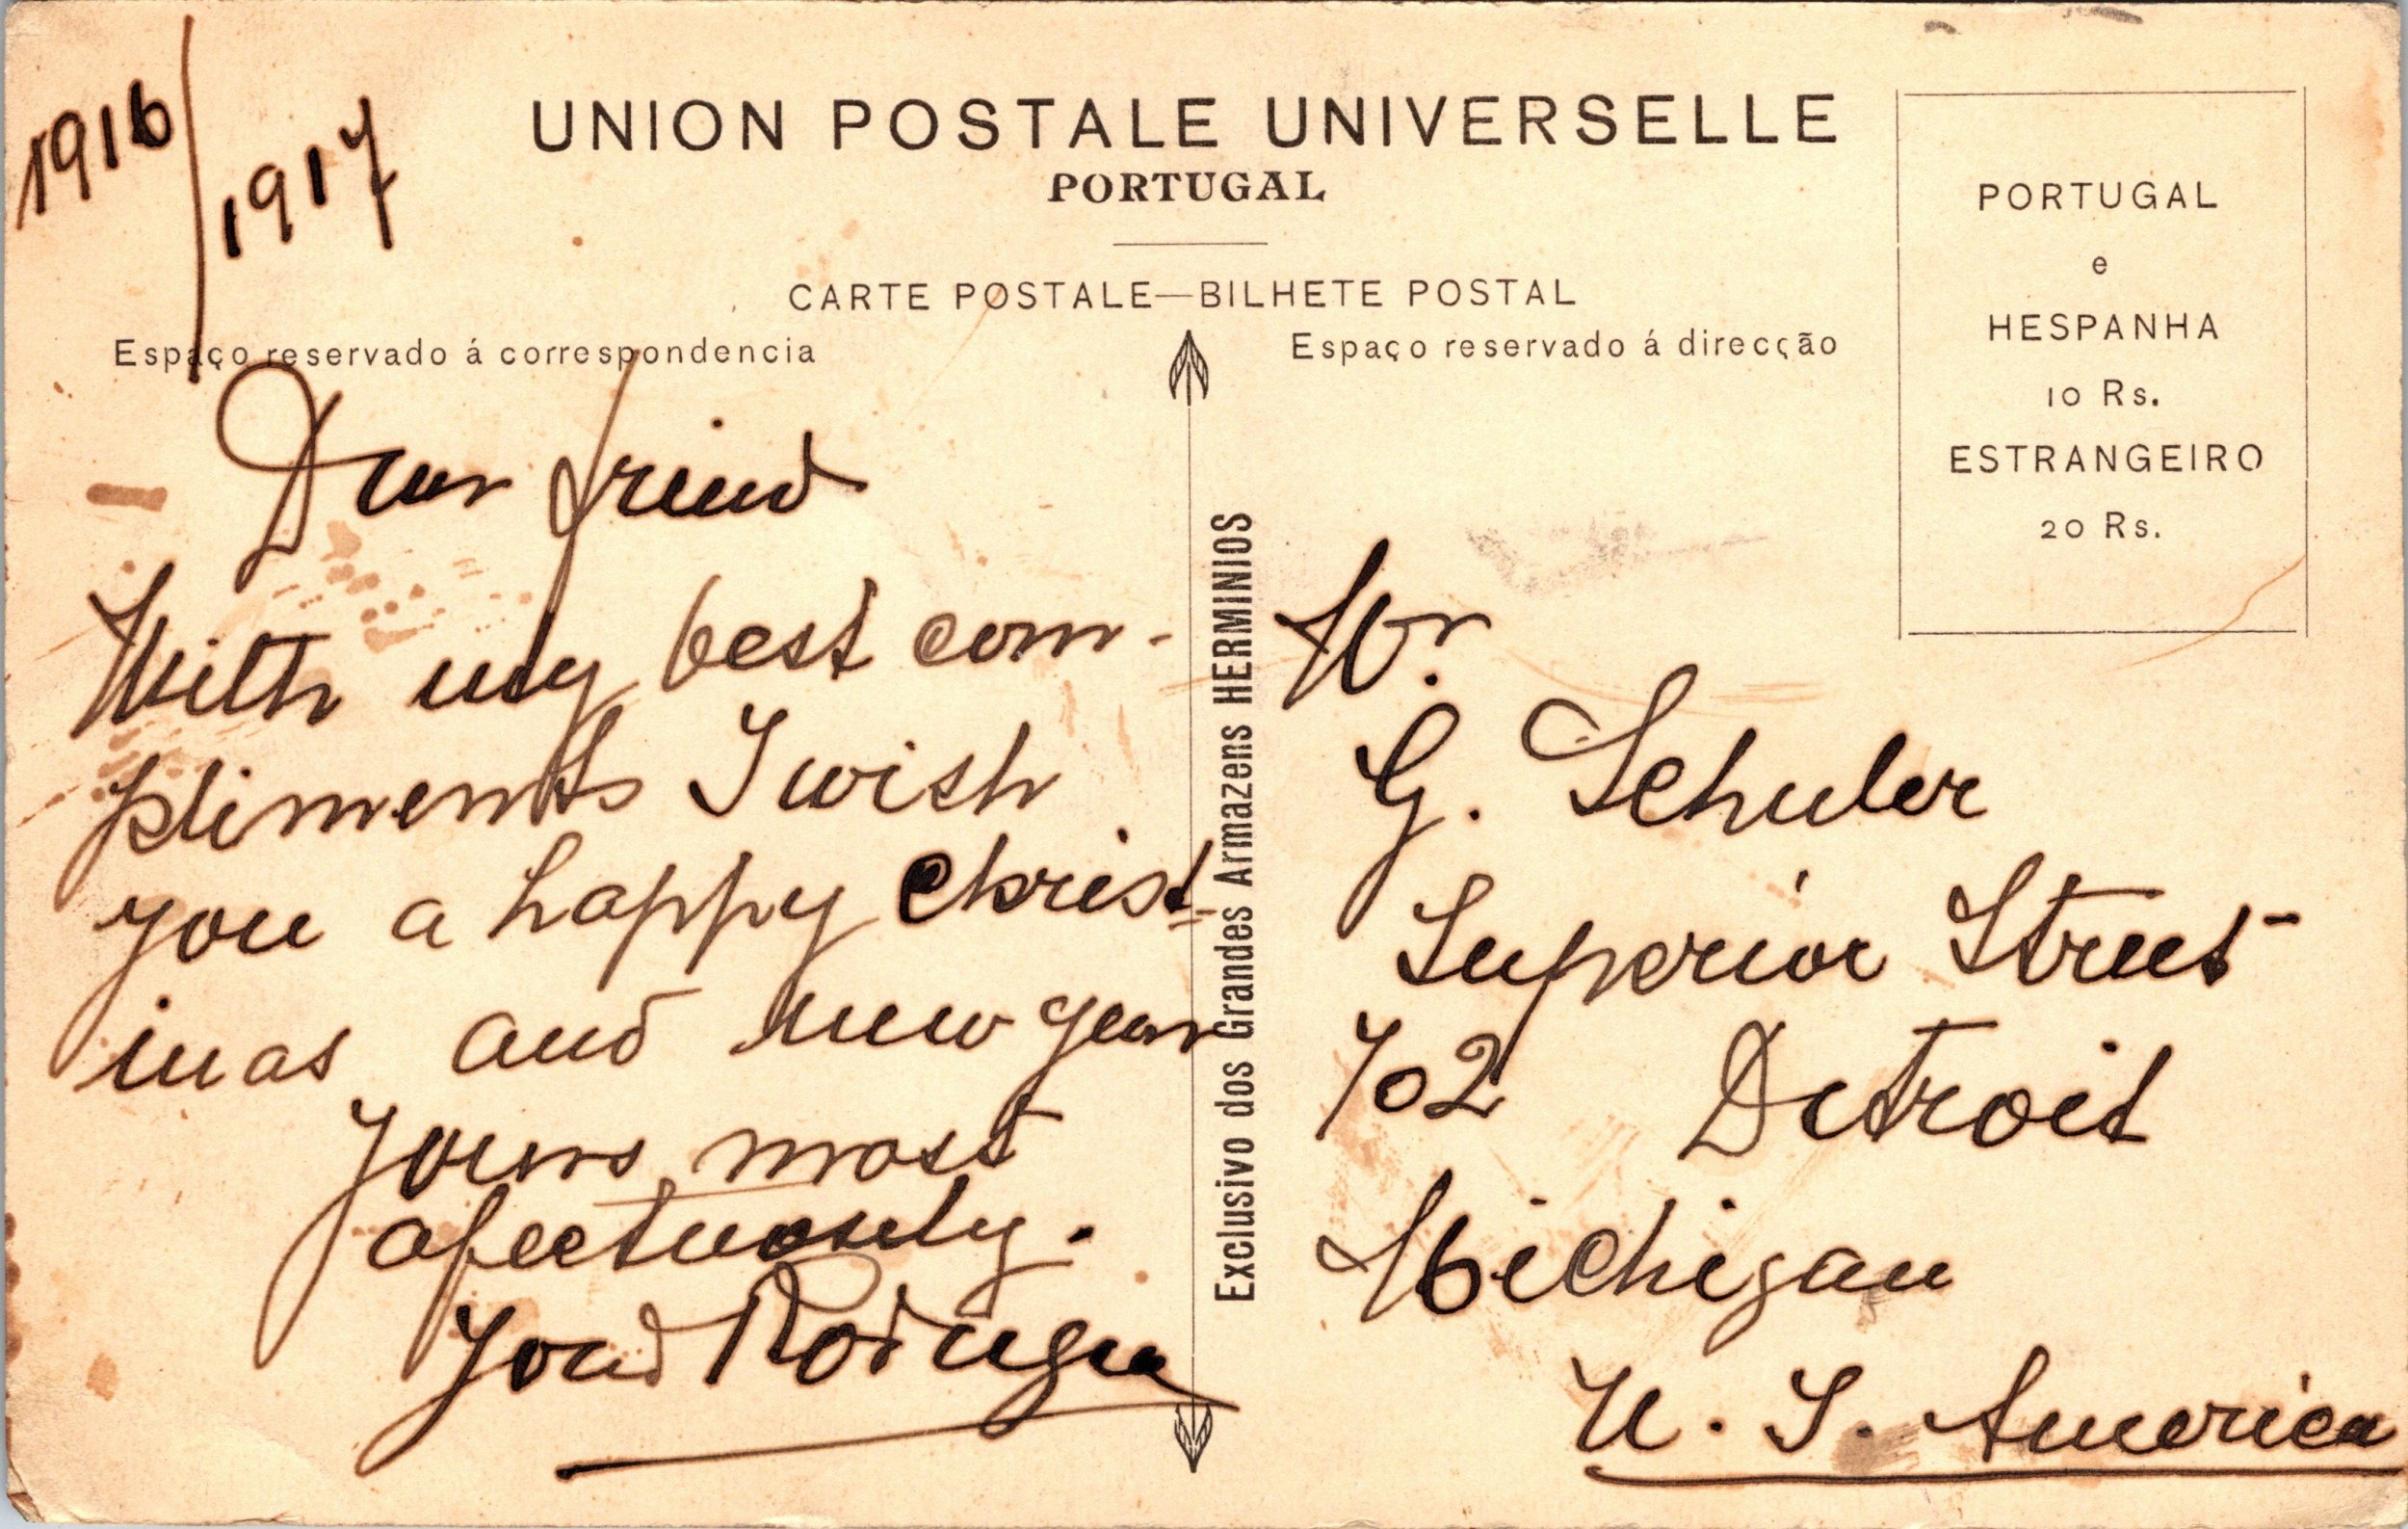 1916/1917
UNION POSTALE UNIVERSELLE
PORTUGAL
CARTE POSTALE—BILHETE POSTAL
Espaço reservado á correspondencia
Espaço reservado á direcção
PORTUGAL
e
HESPANHA
10 Rs.
ESTRANGEIRO
20 Rs.
Dear friend
With my best com-
pliments I wish
you a happy Christ-
mas and new year
Yours most
afectuosely.
Exclusivo dos Grandes Armazens HERMINIOS
Mr.
G. Schuler
Superior Street-
702 Detroit
Michigan
U. S. America